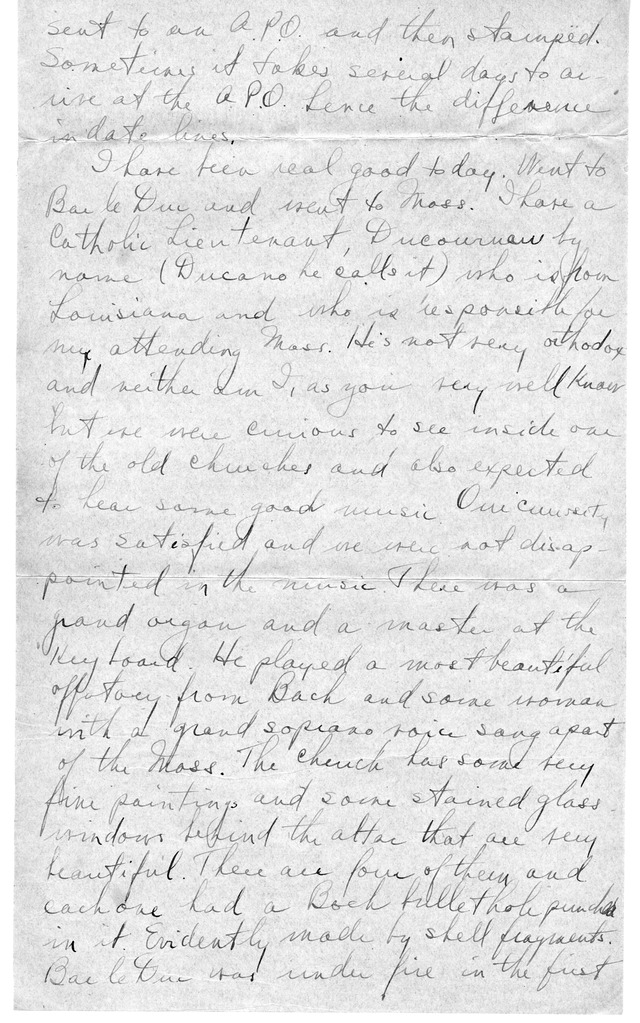 sent to an A.P.O. and then stamped.
Sometimes it takes several days to ar-
rive at the A.P.O. hence the difference
in date lines.
I have been real good today. Went to
Bar le Duc and went to Mass. I have a
Catholic Lieutenant, Ducournau by
name (Ducano he calls it) who is from
Louisiana and who is responsible for
my attending Mass. He's not very orthodox
and neither am I, as you very well know
but we were curious to see inside one
of the old churches and also expected
to hear some good music. Our curiosity
was satisfied and we were not disap-
pointed in the music. There was a
grand organ and a master at the
Keyboard. He played a most beautiful
offatory from Bach and some woman
with a grand soprano voice sang apart
of the Mass. The Church has some very
fine paintings and some stained glass
windows behind the altar that are very
beautiful. There are four of them and
each one had a Boch bullet hole punched
in it. Evidently made by shell fragments.
Bar le Duc was under fire in the first